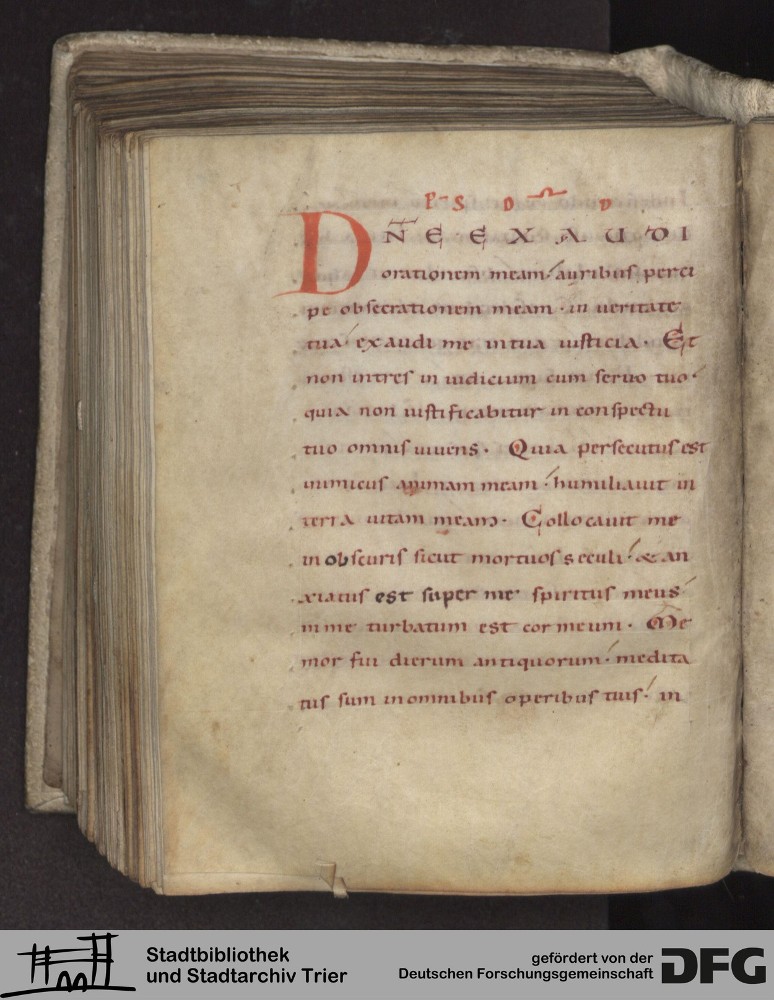 P S D D
DNE EXAUDI
orationem meam· auribus perci
pe obsecrationem meam· in ueritate
tua· exaudi me in tua iusticia· Et
non intres in iudicium cum seruo tuo·
quia non iustificabitur in conspectu
tuo omnis uiuens· Quia persecutus est
inimicus animam meam· humiliauit in
terra uitam meam· Collocauit me
in obscuris sicut mortuos seculi· & an
xiatus est super me spiritus meus
in me turbatum est cor meum· Me
mor fui dierum antiquorum· medita
tus sum in omnibus operibus tuis· in
Stadtbibliothek
und Stadtarchiv Trier
gefördert von der
Deutschen Forschungsgemeinschaft
DFG